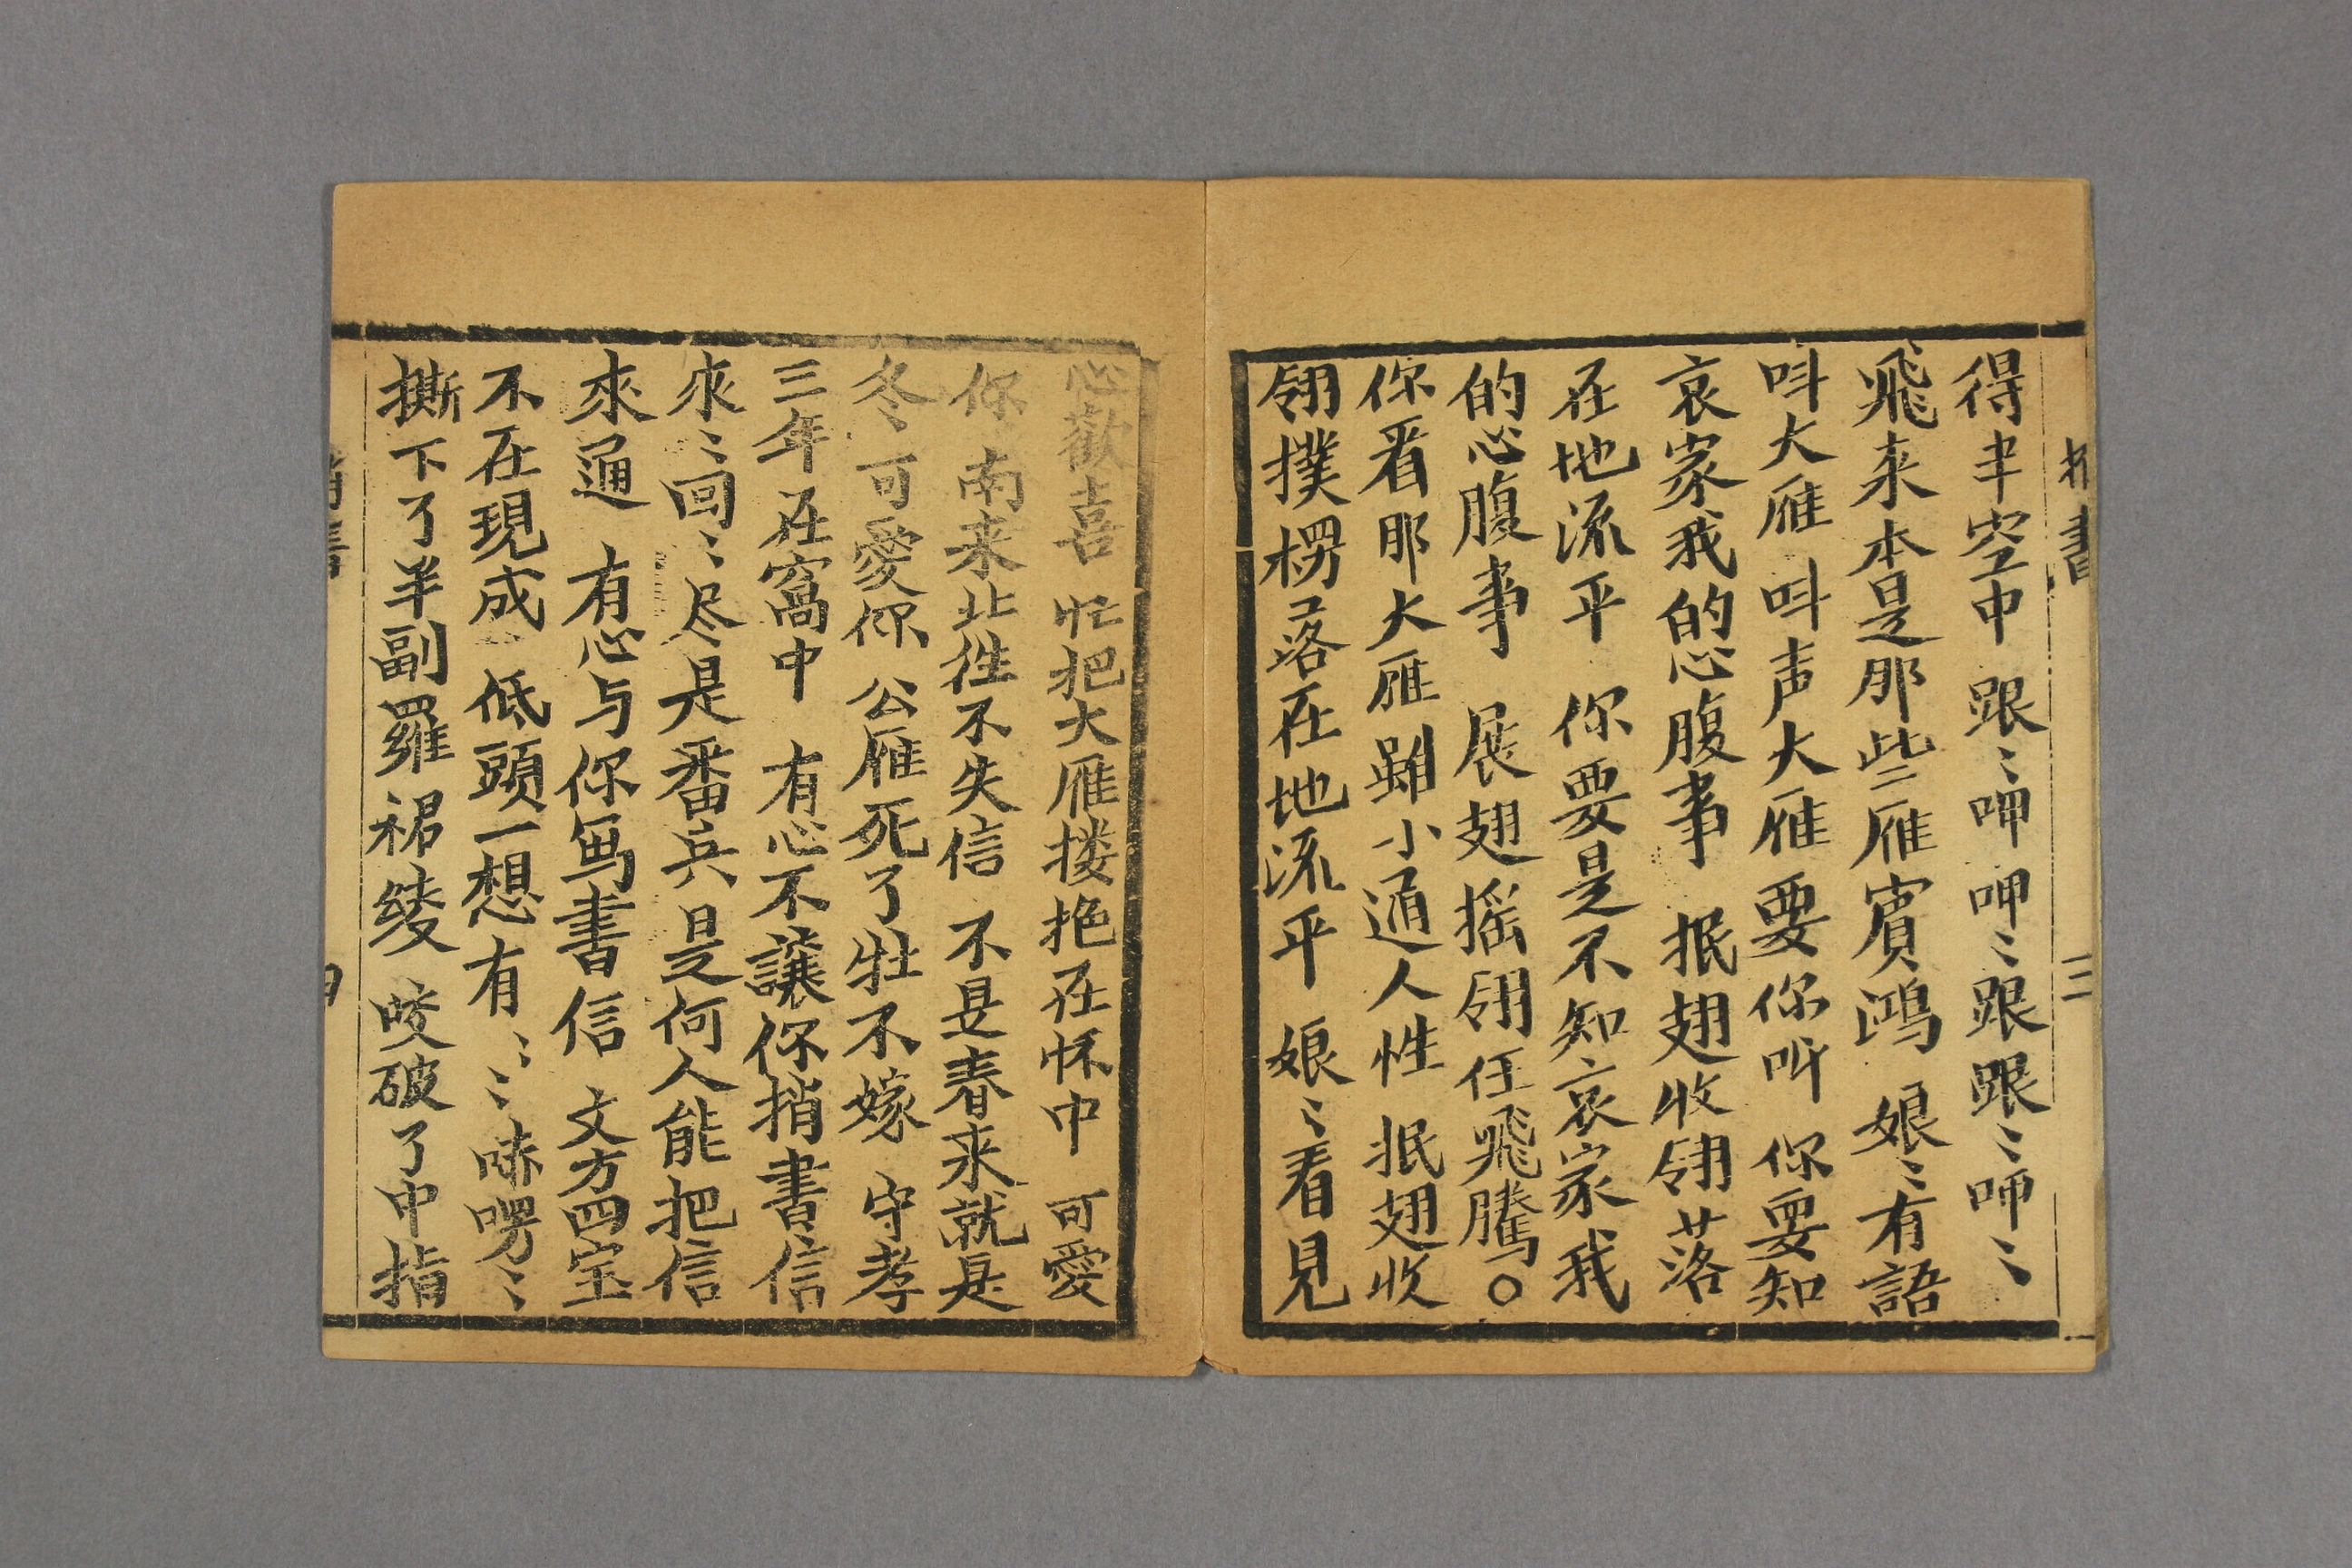 得半空中 跟〻呷呷〻跟跟〻呷〻
飛来本是那些雁賓鴻 娘〻有語
呌大雁 呌声大雁要你听 你要知
哀家我的心腹事 抿翅收翎落
在地流平 你要是不知哀家我
的心腹事 展翅摇翎任飛騰○
你看那大雁雖小通人性 抿翅收
翎撲楞落在地流平 娘〻看見
書 三
心歡喜 忙把大雁搂抱在怀中 可愛
你南来北徃不失信 不是春来就是
冬 可愛你 公雁死了牡不嫁 守孝
三年在窩中 有心不讓你捎書信
來〻回〻尽是番兵 是何人能把信
來通 有心与你写書信 文方四宝
不在現成 低頭一想有〻〻 哧嘮〻
撕下了半副羅裙綾 咬破了中指